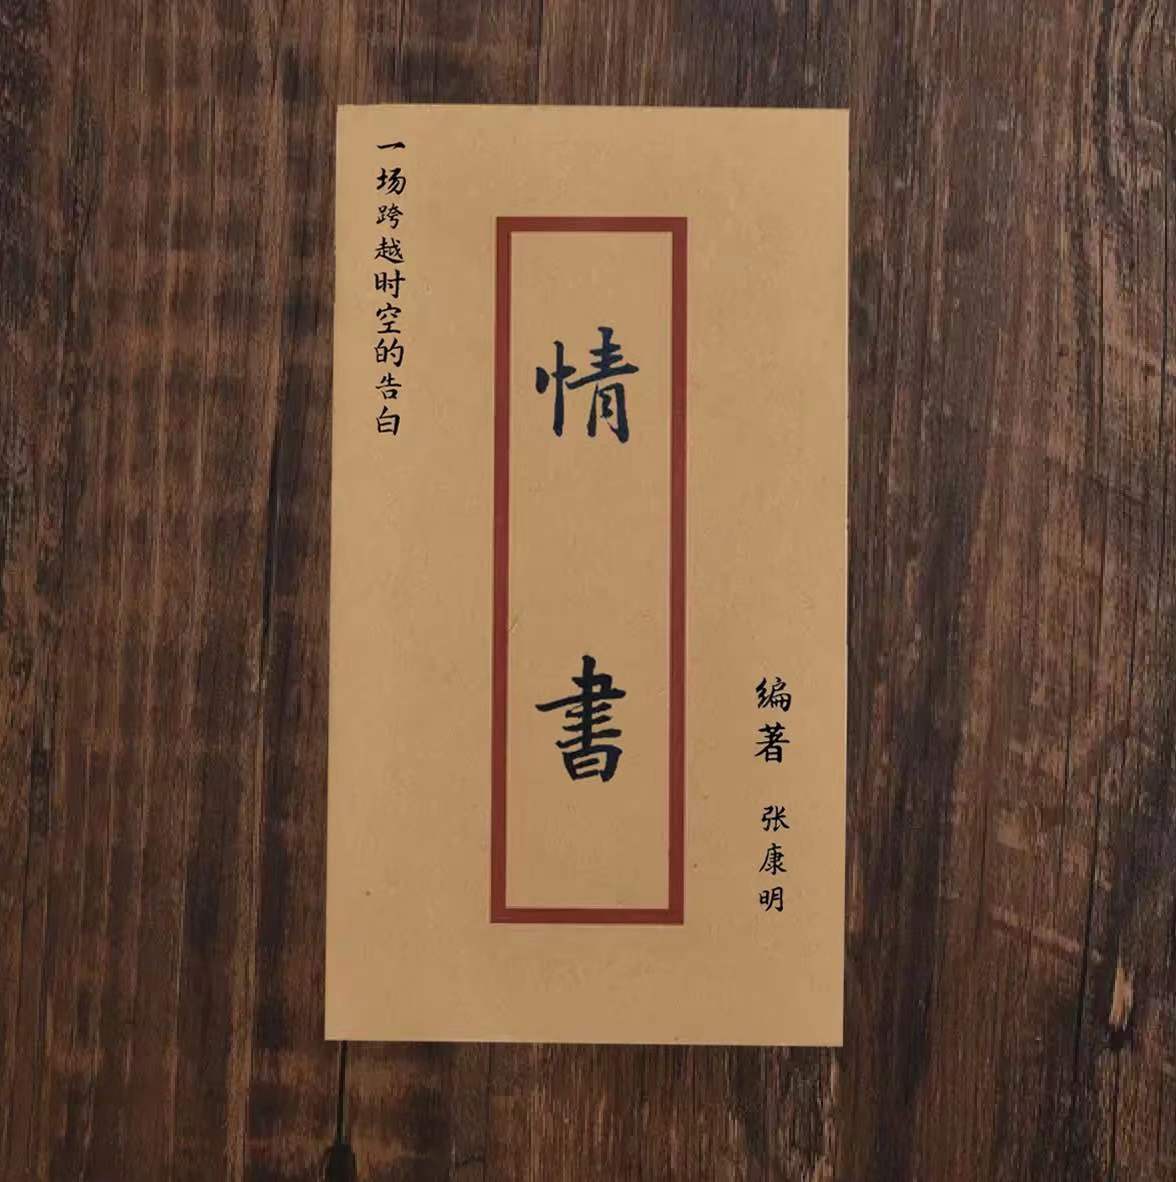 一场跨越时空的告白
情書
编著 张康明